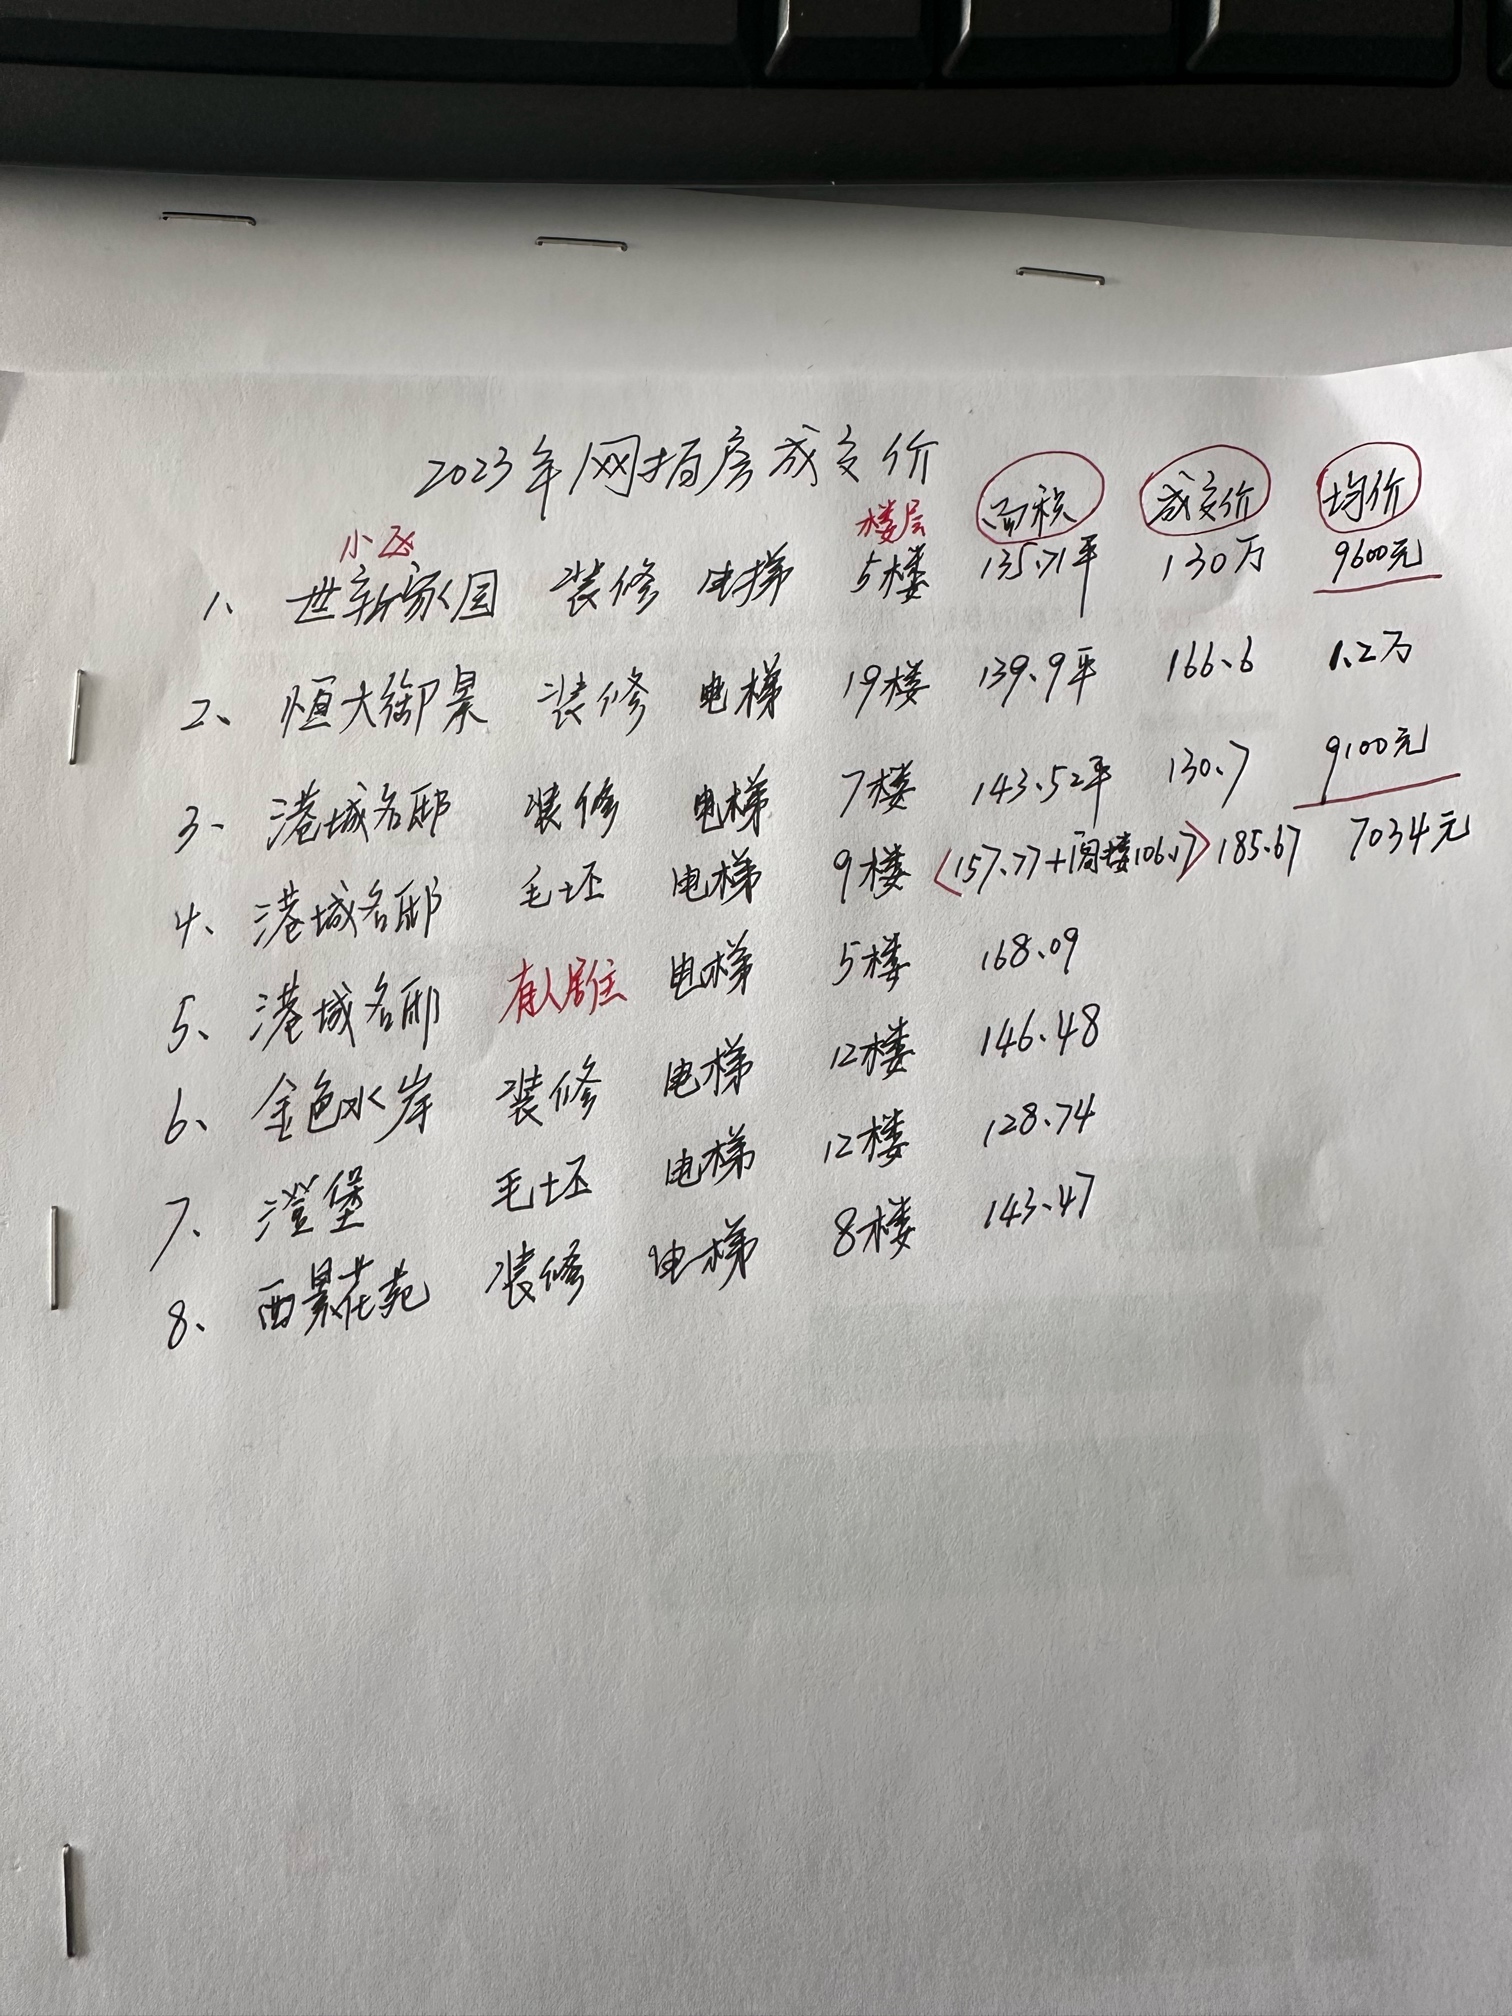 2023年网拍房成交价
小区 楼层 面积 成交价 均价
1、世新家园 装修 电梯 5楼 135.71平 130万 9600元
2、恒大御景 装修 电梯 19楼 139.9平 166.6 1.2万
3、港城名邸 装修 电梯 7楼 143.52平 130.7 9100元
4、港城名邸 毛坯 电梯 9楼 <157.77+阁楼106.17> 185.67 7034元
5、港城名邸 有人居住 电梯 5楼 168.09
6、金色水岸 装修 电梯 12楼 146.48
7、澄堡 毛坯 电梯 12楼 128.74
8、西景花苑 装修 电梯 8楼 143.47